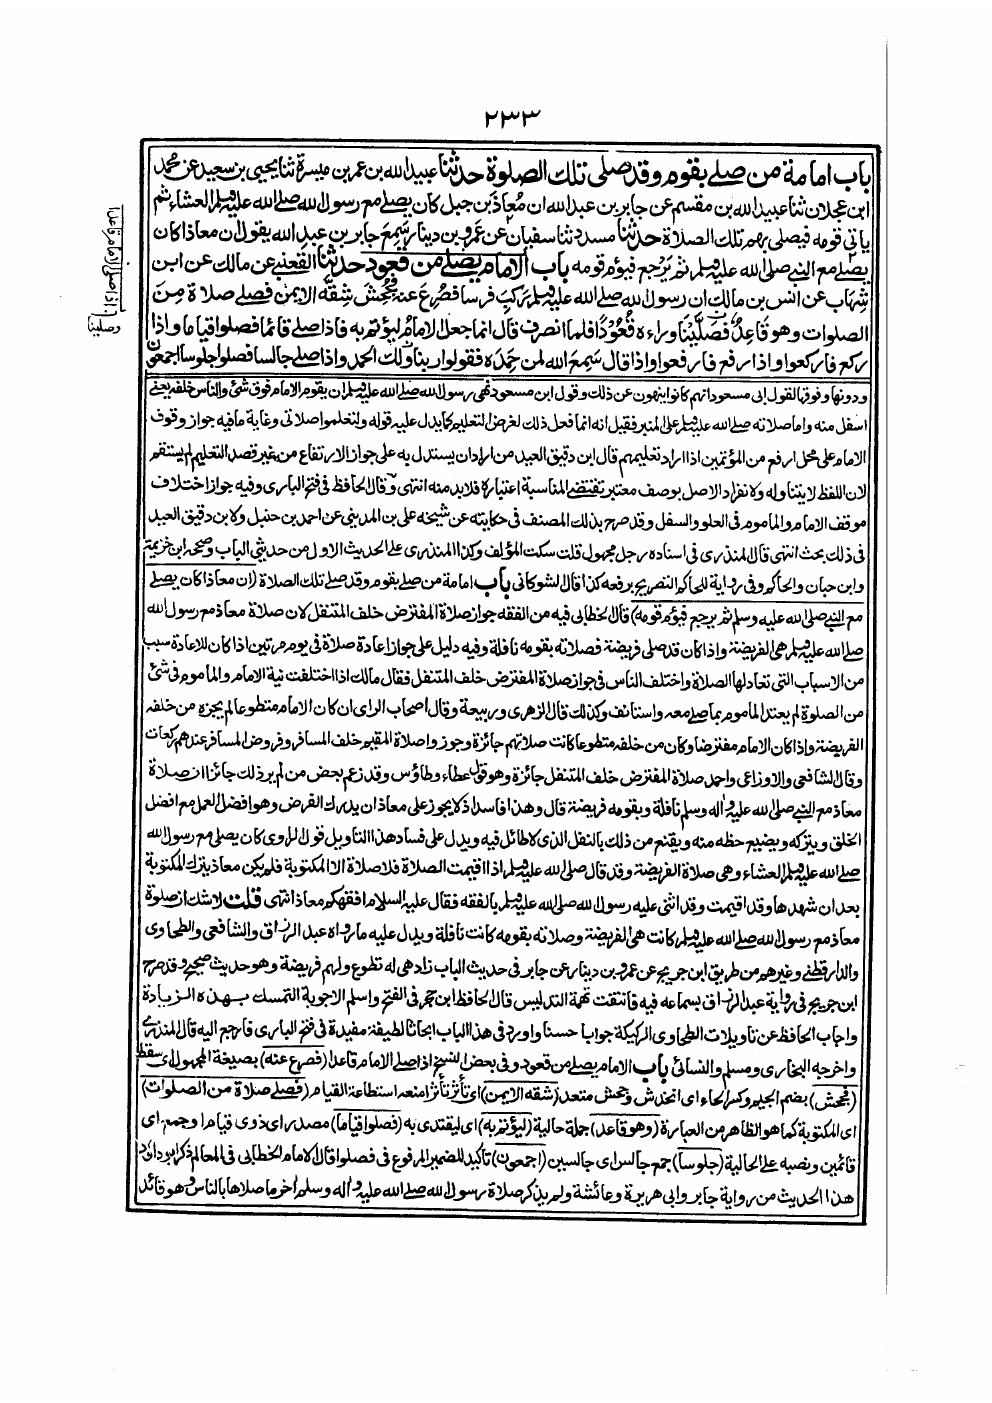 ٢٣٣
باب امامة من صلے بقوم وقد صلى تلك الصلوة حدثنا عبيد الله بن عمر بن ميسرة ثنا يحيى بن سعيد عن محمد
ابن عجلان ثنا عبيد الله بن مقسم عن جابر بن عبد الله ان معاذ بن جبل كان يصلے مع رسول الله صلے الله عليه وسلم العشاء ثم
ياتي قومه فيصلى بهم تلك الصلاة حدثنا مسدد ثنا سفيان عن عمرو بن دينار سَمِعَ جابر بن عبد الله يقول ان معاذا كان
يصلے مع النبي صلى الله عليه وسلم ثم يَرْجِع فيؤم قومه باب الامام يصلے من قعود حدثنا القعنبي عن مالك عن ابن
شِهَاب عن انس بن مالك ان رسول الله صلے الله عليه وسلم رَكِبَ فرسا فصُرِعَ عنه فجُحِشَ شِقُّه الايمن فصلے صلاة مِنَ
الصلوات وهو قاعِدٌ فصلَّيْنا وراءه قُعُوْدًا فلما انصرف قال انما جعل الامامُ ليؤتم به فاذا صلے قائما فصلوا قياما واذا
ركع فاركعوا واذا رفع فارفعوا واذا قال سَمِعَ الله لمن حَمِدَه فقولوا ربنا ولك الحمد واذا صلے جالسا فصلوا جلوسا اجمعون
ودونها وفوقها لقول ابي مسعود انهم كانوا ينهون عن ذلك وقول ابن مسعود نهى رسول الله صلے الله عليه وسلم ان يقوم الامام فوق شئ والناس خلفه يعني
اسفل منه واما صلاته صلے الله عليه وسلم على المنبر فقيل انه انما فعل ذلك لغرض التعليم كما يدل عليه قوله ولتعلموا صلاتي وغاية ما فيه جواز وقوف
الامام على محل ارفع من المؤتمين اذا اراد تعليمهم قال ابن دقيق العيد من اراد ان يستدل به على جواز الارتفاع من غير قصد التعليم لم يستقم
لان اللفظ لا يتناوله ولانفراد الاصل بوصف معتبر تقتضي المناسبة اعتباره فلا بد منه انتهى وقال الحافظ في فتح الباري وفيه جواز اختلاف
موقف الامام والماموم في العلو والسفل وقد صرح بذلك المصنف في حكايته عن شيخه على بن المديني عن احمد بن حنبل ولابن دقيق العيد
في ذلك بحث انتهى قال المنذري في اسناده رجل مجهول قلت سكت المؤلف وكذا المنذري على الحديث الاول من حديثي الباب وصححه ابن خزيمة
وابن حبان والحاكم وفي رواية للحاكم التصريح برفعه كذا قال الشوكاني باب امامة من صلے بقوم وقد صلے تلك الصلاة (ان معاذا كان يصلے
مع النبي صلى الله عليه وسلم ثم يرجع فيؤم قومه) قال الخطابي فيه من الفقه جواز صلاة المفترض خلف المتنفل لان صلاة معاذ مع رسول الله
صلے الله عليه وسلم هي الفريضة واذا كان قد صلى فريضة فصلاته بقومه نافلة وفيه دليل على جواز اعادة صلاة في يوم مرتين اذا كان للاعادة سبب
من الاسباب التي تعاد لها الصلاة واختلف الناس في جواز صلاة المفترض خلف المتنفل فقال مالك اذا اختلفت نية الامام والماموم في شئ
من الصلوة لم يعتد الماموم بما صلے معه واستانف وكذلك قال الزهري وربيعة وقال اصحاب الراى ان كان الامام متطوعا لم يجزه من خلفه
الفريضة واذا كان الامام مفترضا وكان من خلفه متطوعا كانت صلاتهم جائزة وجوزوا صلاة المقيم خلف المسافر وفروض المسافر عندهم ركعات
وقال الشافعي والاوزاعي واحمد صلاة المفترض خلف المتنفل جائزة وهو قول عطاء وطاؤس وقد زعم بعض من لم ير ذلك جائزا ان صلاة
معاذ مع النبي صلى الله عليه واله وسلم نافلة وبقومه فريضة قال وهذا فاسد اذ لا يجوز على معاذ ان يدرك الفرض وهو افضل العمل مع افضل
الخلق ويتركه ويضيع حظه منه ويقنع من ذلك بالنفل الذي لا طائل فيه ويدل على فساد هذا التاويل قول الراوي كان يصلى مع رسول الله
صلے الله عليه وسلم العشاء وهى صلاة الفريضة وقد قال صلى الله عليه وسلم اذا اقيمت الصلاة فلا صلاة الا المكتوبة فلم يكن معاذ يترك المكتوبة
بعد ان شهدها وقد اقيمت وقد اثنى عليه رسول الله صلى الله عليه وسلم بالفقه فقال عليه السلام افقهكم معاذ انتهى قلت لا شك ان صلوة
معاذ مع رسول الله صلى الله عليه وسلم كانت هى الفريضة وصلاته بقومه كانت نافلة ويدل عليه ما رواه عبد الرزاق والشافعي والطحاوى
والدارقطني وغيرهم من طريق ابن جريج عن عمرو بن دينار عن جابر في حديث الباب زاد هى له تطوع ولهم فريضة وهو حديث صحيح وقد صرح
ابن جريج في رواية عبد الرزاق بسماعه فيه فانتفت تهمة التدليس قال الحافظ ابن حجر في الفتح واسلم الاجوبة التمسك بهذه الزيادة
واجاب الحافظ عن تاويلات الطحاوى الركيكة جوابا حسنا واورد في هذا الباب ابحاثا لطيفة مفيدة في فتح الباري فارجع اليه قال المنذرى
واخرجه البخاري ومسلم والنسائي باب الامام يصلے من قعود وفي بعض النسخ اذا صلى الامام قاعدا (فصرع عنه) بصيغة المجهول اى سقط
(فجحش) بضم الجيم وكسر الحاء اى انخدش وجحش متعد (شقه الايمن) اى تأثر تأثرا منعه استطاعة القيام (فصلے صلاة من الصلوات)
اى المكتوبة كما هو الظاهر من العبارة (وهو قاعد) جملة حالية (ليؤتم به) اى ليقتدى به (فصلوا قياما) مصدر اى ذوى قيام او جمع اى
قائمين ونصبه على الحالية (جلوسا) جمع جالس اى جالسين (اجمعون) تاكيد للضمير المرفوع في فصلوا قال الامام الخطابي في المعالم ذكر ابو داود
هذا الحديث من رواية جابر وابي هريرة وعائشة ولم يذكر صلاة رسول الله صلى الله عليه واله وسلم اخر ما صلاها بالناس وهو قاعد
اذا صلى الامام قاعدا